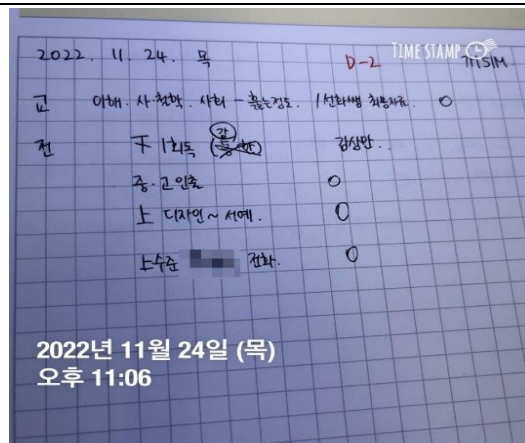 2022. 11. 24. 목 D-2 TIME STAMP
교 아해. 사·철학. 사회 - 훑는정도. / 선화쌤 최종자료. O
전 下 1회독 (감) 감상만..
중·고 인출 O
上 디자인~서예. O
上수준 전화. O
2022년 11월 24일 (목)
오후 11:06